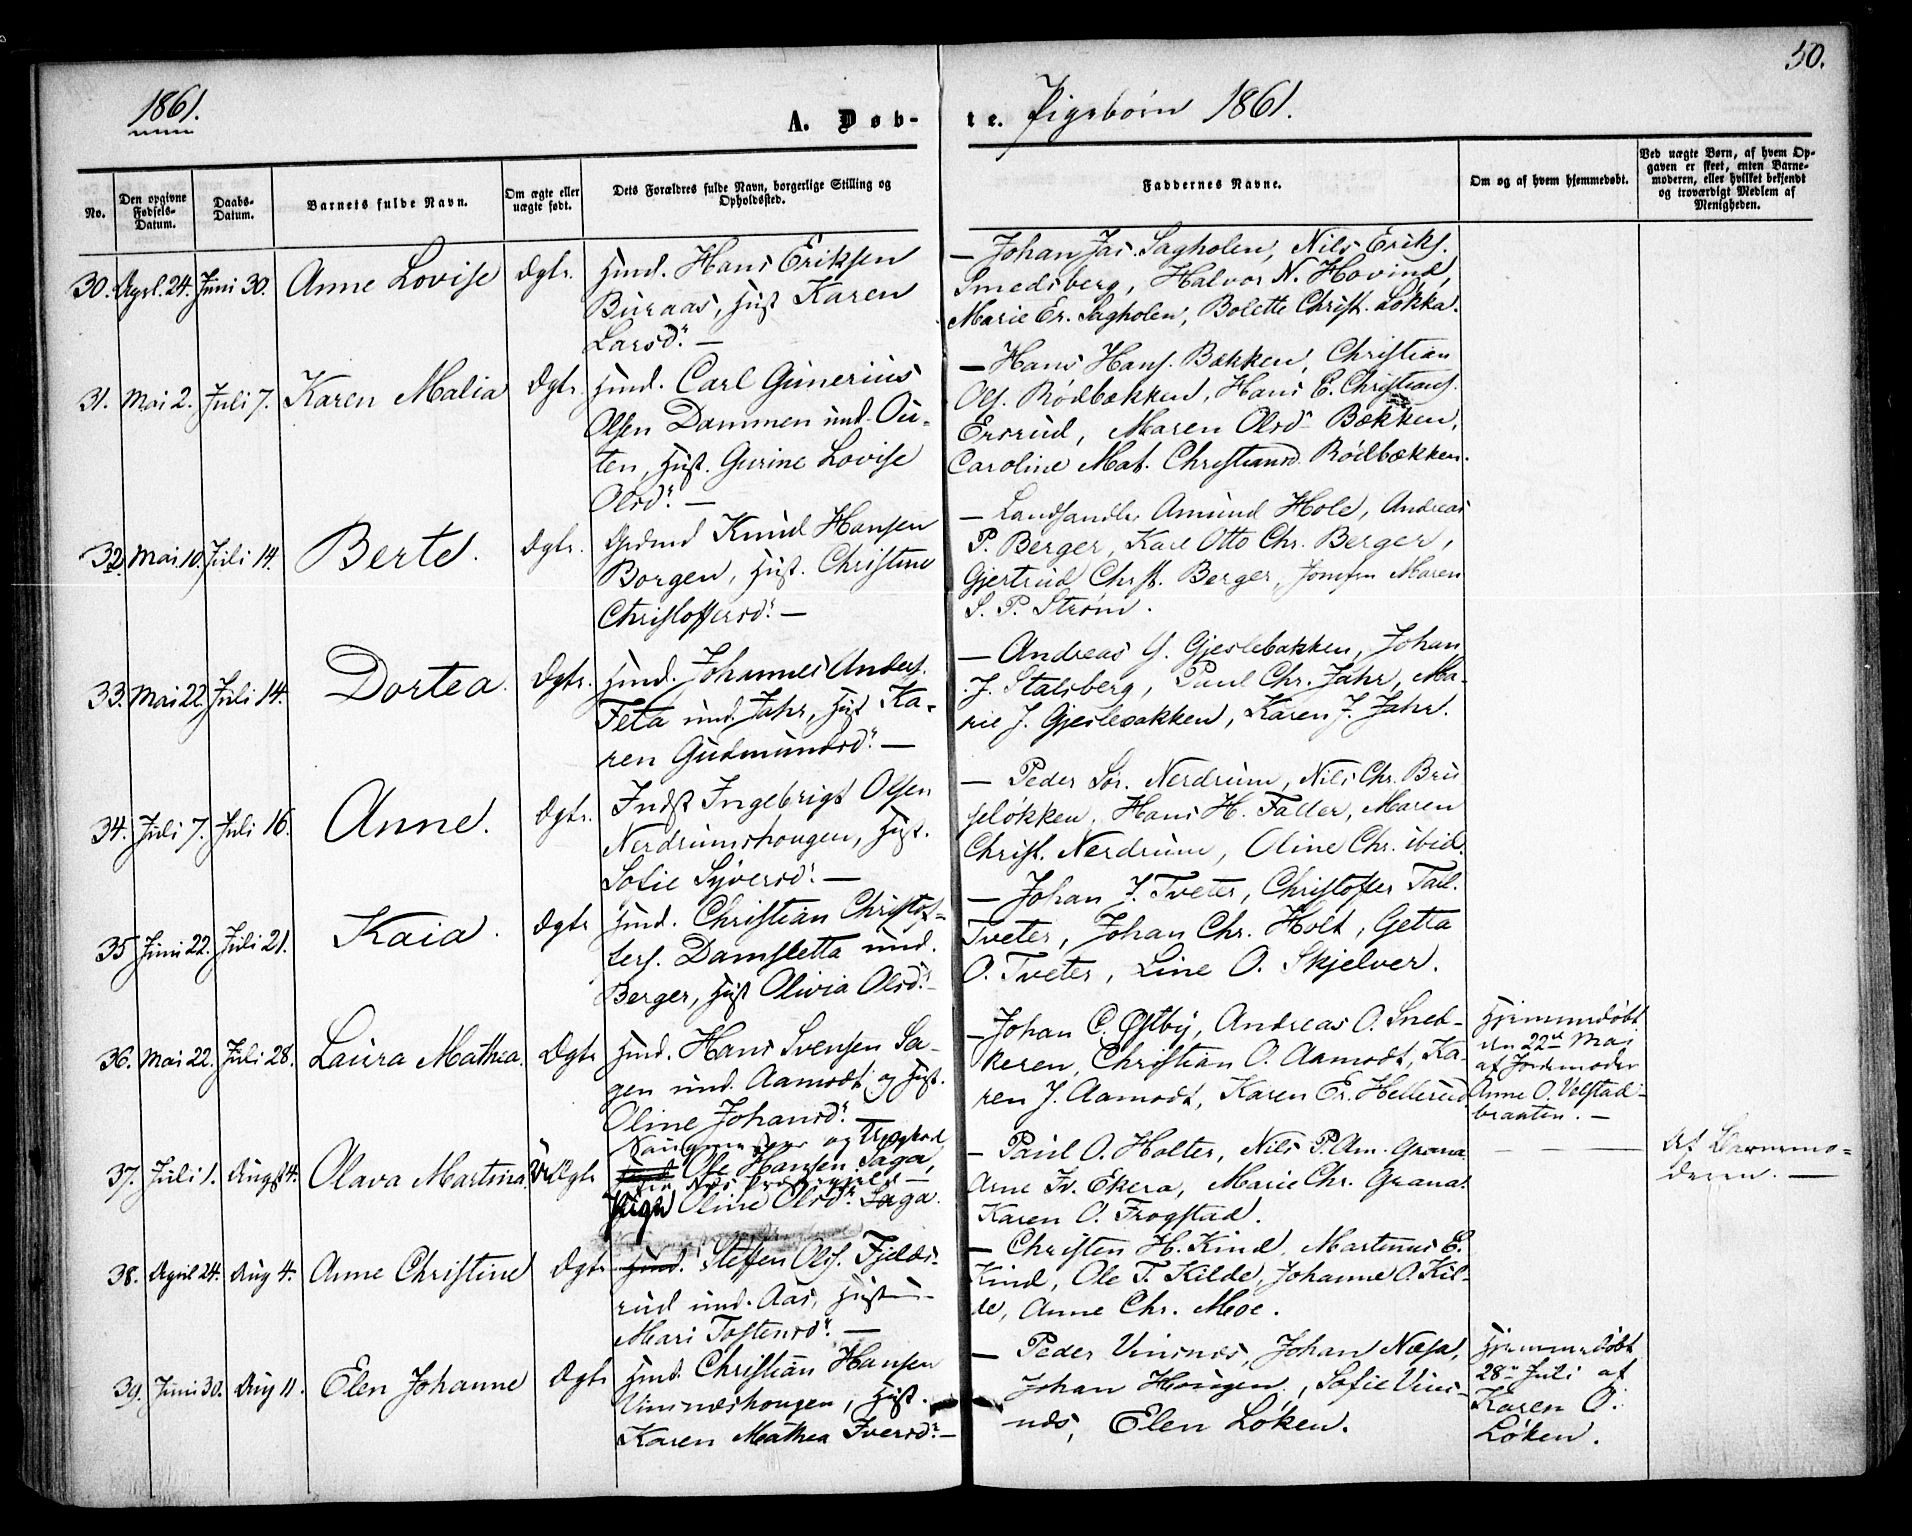 50.
1861.
A. Døb-
te. Pigebörn 1861.
No.
Den opgivne Fødsels-Datum.
Daabs-Datum.
Barnets fulde Navn.
Om ægte eller uægte født.
Dets Forældres fulde Navn, borgerlige Stilling og Opholdssted.
Faddernes Navne.
Om og af hvem hjemmedøbt.
Ved uægte Børn, af hvem Op-
gaven er skeet, enten Barne-
moderen, eller hvilket bekjendt
og troværdigt Medlem af
Menigheden.
30. April. 24. Juni 30. Anne Lovise Dgtr. Husmd. Hans Eriksen
Buraas, Hust Karen
Larsdr. —
— Johan Jas. Sagholen, Nils Eriks.
Smedsberg, Halvor N. Hovind,
Marie Er. Sagholen, Bolette Christ. Løkka.
31. Mai 2. Juli 7. Karen Malia Dgtr. Husmd. Carl Gunerius
Olsen Dammen und. Ou-
ten, Hust. Gurine Lovise
Olsdr. —
— Hans Hans. Bækken, Christian
Ols. Rödbækken, Hans E. Christians.
Ersrud, Maren Olsdr Bækken,
Caroline Mat. Christiansd. Rödbækken.
32. Mai 10. Juli 14. Berte. Dgtr. Gdmd Knud Hansen
Borgen, Hust. Christine
Christoffersdr. —
— Landhandler Amund Hole, Andreas
P. Berger, Karl Otto Chr. Berger,
Gjertrud Christ. Berger, Jomfru Maren
S. P. Ström.
33. Mai 22. Juli 14. Dortea. Dgtr. Husmd. Johannes Anders.
Feta und. Jahr, Hust Ka-
ren Gudmundsdr. —
— Andreas G. Gjeslebakken, Johan
J. Stalsberg, Paul Chr. Jahr, Ma-
rie J. Gjeslebakken, Karen J. Jahr.
34. Juli 7. Juli 16. Anne. Dgtr. Indst Ingebrigt Olsen
Nerdrumshougen, Hust.
Sofie Syversdr. —
— Peder Sör. Nerdrum, Nils Chr. Bru
seløkken, Hans H. Faller, Maren
Christ. Nerdrum, Oline Chr. ibid.
35 Juni 22. Juli 21. Kaia. Dgtr Husmd. Christian Christof-
fers. Damsletta und.
Berger, Hust Olivia Olsdr. —
— Johan J. Tveter, Christoffer Tall.
Tveter, Johan Chr. Holt, Getta
O. Tveter, Line O. Skjelver.
36. Mai 22. Juli 28. Laura Mathea. Dgtr Husmd. Hans Svensen Sa-
gen und. Aamodt og Hust.
Oline Johansdr. —
— Johan C. Østby, Andreas O. Sned-
keren, Christian O. Aamodt, Ka-
ren J. Aamodt, Karen Er. Hellerud
Hjemmedöbt
den 22de Mai
af Jordemoder
Anne O. Velstad-
braaten. —
37. Juli 1. August 4. Olava Martina. U. Dgtr
og Ungkarl
Ole Hansen Saga,
Pige Oline Olsdr. Saga.
— Paul O. Holter, Nils P. Alm. Grana
Arne Iv. Ekera, Marie Chr. Grana.
Karen O. Frogstad.
— — —
Af Barnemo-
deren. —
38. April 24. Aug 4. Anne Christine Dgtr Husmd. Steffen Ols. Fjelds-
rud und. Aas, Hust
Mari Tostensdr. —
— Christen H. Kind, Martinus E.
Kind, Ole T. Kilde, Johanne O. Kil-
de, Anne Chr. Moe.
39. Juni 30. Aug 11. Elen Johanne Dgtr Husmd. Christian Hansen
Vinnæshougen, Hust.
Karen Mathea Iversdr. —
— Peder Vinnes, Johan Næsa,
Johan Hougen, Sofie Vin-
næs, Elen Løken.
Hjemmedöbt
28de Juli af
Karen O.
Løken.